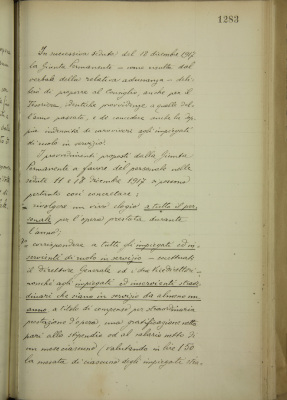 1283
In successiva seduta del 18 dicembre 1917
la Giunta Permanente – come risulta dal
verbale della relativa adunanza – deli-
berò di proporre al Consiglio, anche per il
identiche provvidenze a quelle del-
l'anno passato, e di concedere anche la
indennità di caroviveri agli impiegati
di ruolo in servizio.
I provvedimenti proposti dalla Giunta
Permanente a favore del personale nelle
sedute 11 e 18 dicembre 1917 possono
pertanto così concretarsi:
rivolgere un vivo elogio a tutto il per-
sonale per l'opera prestata durante
l'anno;
corrispondere a tutti gli impiegati ed in-
servienti di ruolo in servizio – eccettuati
il Direttore Generale ed i due Vicedirettori –
nonchè agli impiegati ed inservienti straor-
dinari che siano in servizio da almeno un
anno a titolo di compenso per straordinaria
prestazione d'opera, una gratificazione
pari allo stipendio od al salario netto di
un mese ciascuno (valutando in lire 150
la mesata di ciascuno degli impiegati